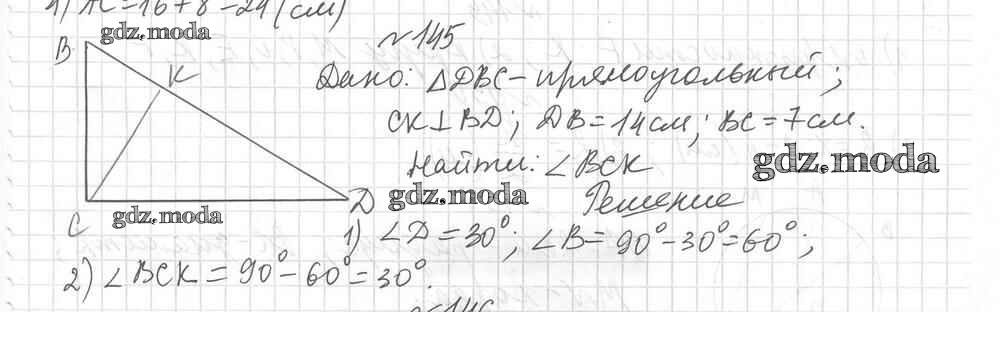 1) AC = 16 + 8 = 24 (см)
B gdz.moda №145
K Дано: △DBC – прямоугольный;
CK ⊥ BD; DB = 14 см; BC = 7 см.
Найти: ∠BCK gdz.moda
C gdz.moda D gdz.moda Решение
1) ∠D = 30°; ∠B = 90° – 30° = 60°;
2) ∠BCK = 90° – 60° = 30°.